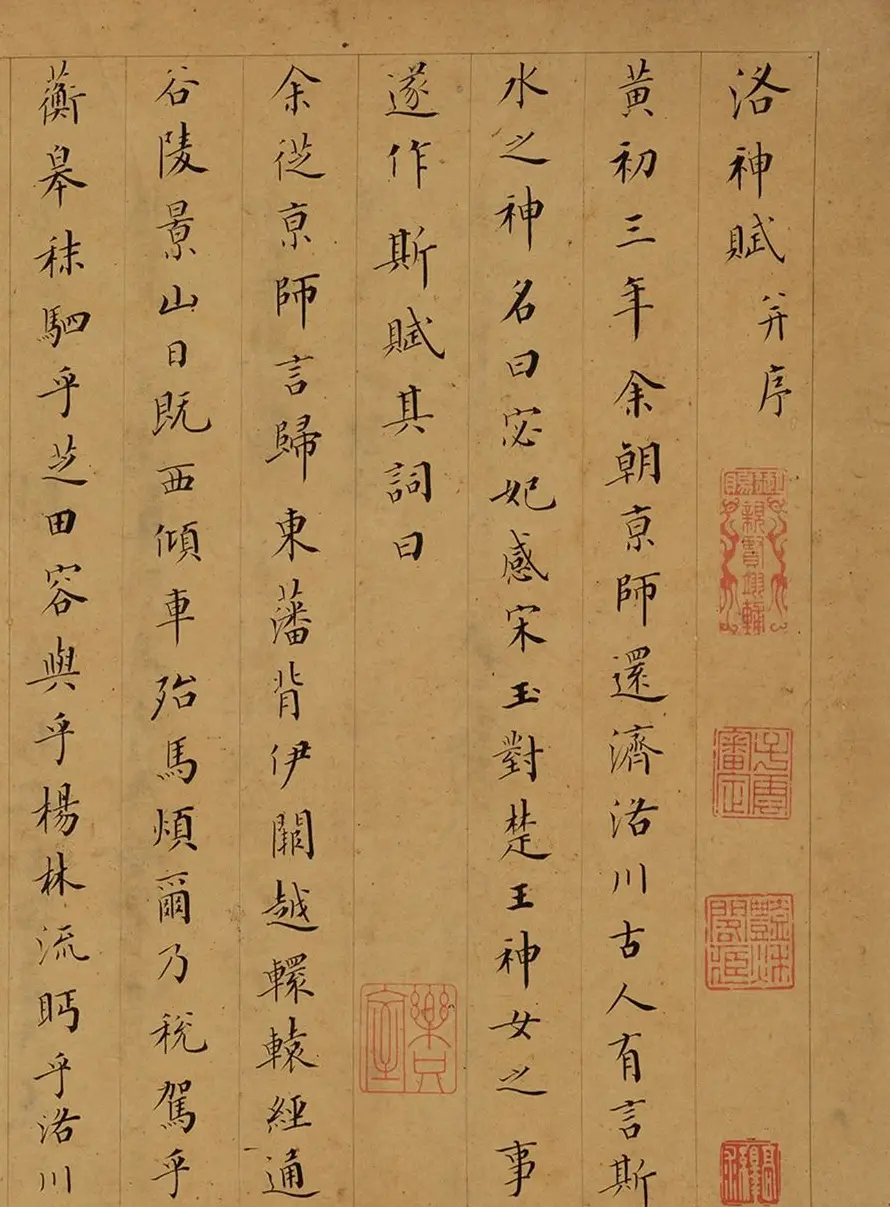 洛神賦 并序
黃初三年余朝京師還濟洛川古人有言斯
水之神名曰宓妃感宋玉對楚王神女之事
遂作斯賦其詞曰
余從京師言歸東藩背伊闕越轘轅經通
谷陵景山日既西傾車殆馬煩爾乃稅駕乎
蘅皋秣駟乎芝田容與乎楊林流眄乎洛川